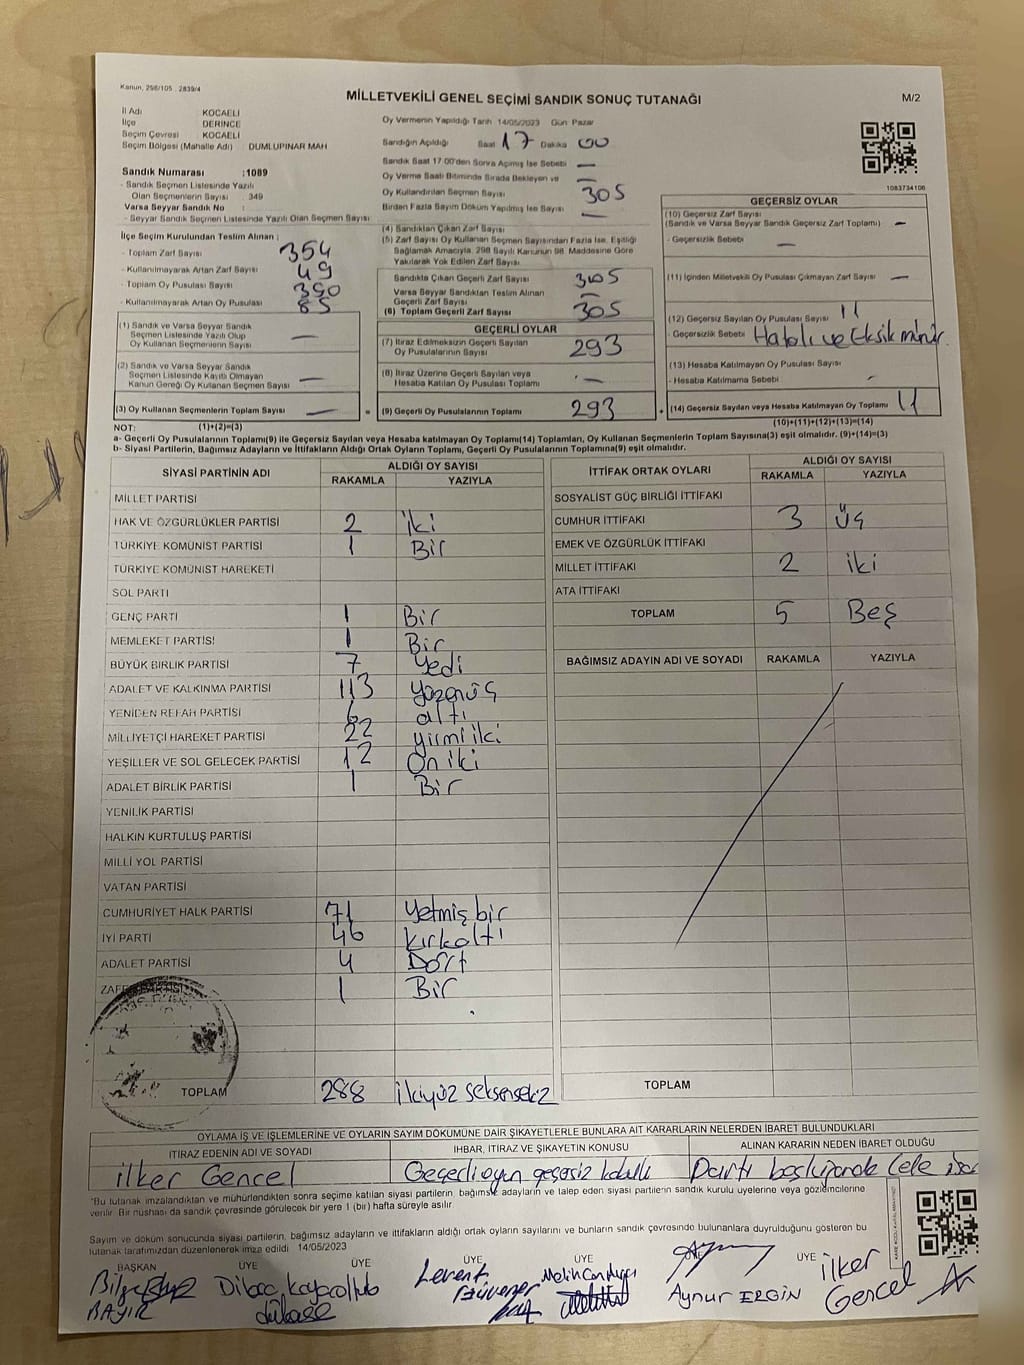 Kanun, 298/105 . 2839/4
MİLLETVEKİLİ GENEL SEÇİMİ SANDIK SONUÇ TUTANAĞI
M/2
İl Adı KOCAELİ
İlçe DERİNCE
Seçim Çevresi KOCAELİ
Seçim Bölgesi (Mahalle Adı) : DUMLUPINAR MAH
Sandık Numarası :1089
- Sandık Seçmen Listesinde Yazılı
Olan Seçmenlerin Sayısı : 349
Varsa Seyyar Sandık No :
- Seyyar Sandık Seçmen Listesinde Yazılı Olan Seçmen Sayısı
Oy Vermenin Yapıldığı Tarih 14/05/2023 Gün: Pazar
Sandığın Açıldığı Saat 17 Dakika 00
Sandık Saat 17:00'den Sonra Açımış İse Sebebi —
Oy Verme Saati Bitiminde Sırada Bekleyen ve —
Oy Kullandırılan Seçmen Sayısı 305
Birden Fazla Sayım Döküm Yapılmış İse Sayısı —
1083734106
İlçe Seçim Kurulundan Teslim Alınan :
- Toplam Zarf Sayısı 354
- Kullanılmayarak Artan Zarf Sayısı 49
- Toplam Oy Pusulası Sayısı 390
- Kullanılmayarak Artan Oy Pusulası 85
(1) Sandık ve Varsa Seyyar Sandık
Seçmen Listesinde Yazılı Olup
Oy Kullanan Seçmenlerin Sayısı —
(2) Sandık ve Varsa Seyyar Sandık
Seçmen Listesinde Kayıtlı Olmayan
Kanun Gereği Oy Kullanan Seçmen Sayısı —
(3) Oy Kullanan Seçmenlerin Toplam Sayısı —
(4) Sandıktan Çıkan Zarf Sayısı
(5) Zarf Sayısı Oy Kullanan Seçmen Sayısından Fazla İse, Eşitliği
Sağlamak Amacıyla, 298 Sayılı Kanunun 98. Maddesine Göre
Yakılarak Yok Edilen Zarf Sayısı
Sandıkta Çıkan Geçerli Zarf Sayısı 305
Varsa Seyyar Sandıktan Teslim Alınan
Geçerli Zarf Sayısı —
(6) Toplam Geçerli Zarf Sayısı 305
GEÇERLİ OYLAR
(7) İtiraz Edilmeksizin Geçerli Sayılan
Oy Pusulalarının Sayısı 293
(8) İtiraz Üzerine Geçerli Sayılan veya
Hesaba Katılan Oy Pusulası Toplamı —
= (9) Geçerli Oy Pusulalarının Toplamı 293
GEÇERSİZ OYLAR
(10) Geçersiz Zarf Sayısı
(Sandık ve Varsa Seyyar Sandık Geçersiz Zarf Toplamı) —
- Geçersizlik Sebebi —
(11) İçinden Milletvekili Oy Pusulası Çıkmayan Zarf Sayısı —
(12) Geçersiz Sayılan Oy Pusulası Sayısı 11
- Geçersizlik Sebebi Hatalı ve Eksik mühür.
(13) Hesaba Katılmayan Oy Pusulası Sayısı
- Hesaba Katılmama Sebebi -
+ (14) Geçersiz Sayılan veya Hesaba Katılmayan Oy Toplamı 11
NOT: (1)+(2)=(3)
(10)+(11)+(12)+(13)=(14)
a- Geçerli Oy Pusulalarının Toplamı(9) ile Geçersiz Sayılan veya Hesaba katılmayan Oy Toplamı(14) Toplamları, Oy Kullanan Seçmenlerin Toplam Sayısına(3) eşit olmalıdır. (9)+(14)=(3)
b- Siyasi Partilerin, Bağımsız Adayların ve İttifakların Aldığı Ortak Oyların Toplamı, Geçerli Oy Pusulalarının Toplamına(9) eşit olmalıdır.
SİYASİ PARTİNİN ADI ALDIĞI OY SAYISI
RAKAMLA YAZIYLA
MİLLET PARTİSİ
HAK VE ÖZGÜRLÜKLER PARTİSİ 2 iki
TÜRKİYE KOMÜNİST PARTİSİ 1 Bir
TÜRKİYE KOMÜNİST HAREKETİ
SOL PARTİ
GENÇ PARTİ 1 Bir
MEMLEKET PARTİSİ 1 Bir
BÜYÜK BİRLİK PARTİSİ 7 Yedi
ADALET VE KALKINMA PARTİSİ 113 yüzonüç
YENİDEN REFAH PARTİSİ 6 altı
MİLLİYETÇİ HAREKET PARTİSİ 22 yirmi iki
YEŞİLLER VE SOL GELECEK PARTİSİ 12 On iki
ADALET BİRLİK PARTİSİ 1 Bir
YENİLİK PARTİSİ
HALKIN KURTULUŞ PARTİSİ
MİLLİ YOL PARTİSİ
VATAN PARTİSİ
CUMHURİYET HALK PARTİSİ 71 Yetmiş bir
İYİ PARTİ 46 kırkaltı
ADALET PARTİSİ 4 Dört
ZAFER PARTİSİ 1 Bir
TOPLAM 288 ikiyüz seksensekiz
İTTİFAK ORTAK OYLARI ALDIĞI OY SAYISI
RAKAMLA YAZIYLA
SOSYALİST GÜÇ BİRLİĞİ İTTİFAKI
CUMHUR İTTİFAKI 3 üç
EMEK VE ÖZGÜRLÜK İTTİFAKI
MİLLET İTTİFAKI 2 iki
ATA İTTİFAKI
TOPLAM 5 Beş
BAĞIMSIZ ADAYIN ADI VE SOYADI RAKAMLA YAZIYLA
TOPLAM
OYLAMA İŞ VE İŞLEMLERİNE VE OYLARIN SAYIM DÖKÜMÜNE DAİR ŞİKAYETLERLE BUNLARA AİT KARARLARIN NELERDEN İBARET BULUNDUKLARI
İTİRAZ EDENİN ADI VE SOYADI İHBAR, İTİRAZ VE ŞİKAYETİN KONUSU ALINAN KARARIN NEDEN İBARET OLDUĞU
ilker Gencel Geçerli oyun geçersiz kabulü
"Bu tutanak imzalandıktan ve mühürlendikten sonra seçime katılan siyasi partilerin, bağımsız adayların ve talep eden siyasi partilerin sandık kurulu üyelerine veya gözlemcilerine
verilir. Bir nüshası da sandık çevresinde görülecek bir yere 1 (bir) hafta süreyle asılır.
Sayım ve döküm sonucunda siyasi partilerin, bağımsız adayların ve ittifakların aldığı ortak oyların sayılarını ve bunların sandık çevresinde bulunanlara duyrulduğunu gösteren bu
tutanak tarafımızdan düzenlenerek imza edildi. 14/05/2023
BAŞKAN ÜYE ÜYE ÜYE ÜYE ÜYE
BAYIR
Levent
Aynur ERGİN
ilker
Gencel